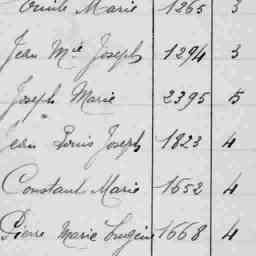 Marie 1265 3
Jean Mie Joseph 1294 3
Joseph Marie 2395 5
Jean Louis Joseph 1823 4
Constant Marie 1652 4
Pierre Marie Eugène 1668 4